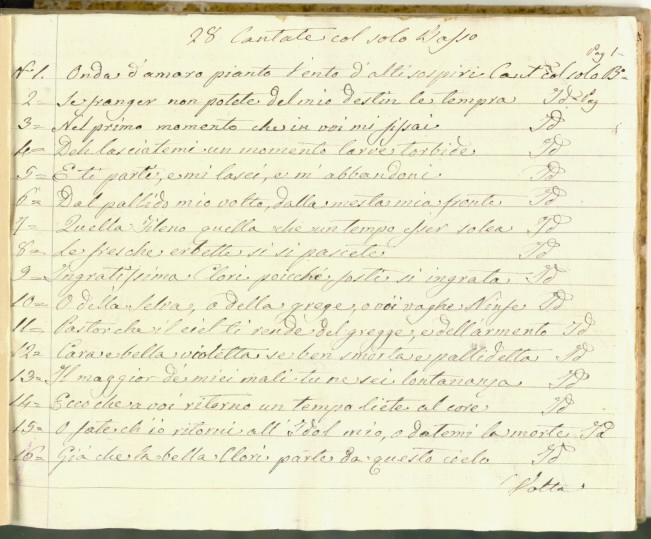 28 Cantate col solo Basso
Pag 1
N.º 1. Onda d'amaro pianto vento d'alti sospiri Cant Col solo Bº
2= Se franger non potete del mio destin le tempra Id
3= Nel primo momento che in voi mi fissai Id
4= Deh lasciatemi un momento larve torbide Id
5= E ti parti, e mi lasci, e m'abbandoni Id
6= Dal pallido mio volto, dalla mesta mia fronte Id
7= Quella Fileno quella che un tempo esser solea Id
8= Le fresche erbette si si pascete Id
9= Ingratissima Clori perché fosti si ingrata Id
10= O della selva, o della grege, o voi vaghe Ninfe Id
11= Pastor che il ciel ti rendè del gregge, e dell'armento Id
12= Cara e bella violetta se ben smorta e pallidetta Id
13= Il maggior de miei mali tu ne sei lontananza Id
14= Ecco che a voi ritorno un tempo liete al core Id
15= O fate ch'io ritorni all'Idol mio, o datemi la morte Id
16= Già che la bella Clori parte da questo cielo Id
Volta